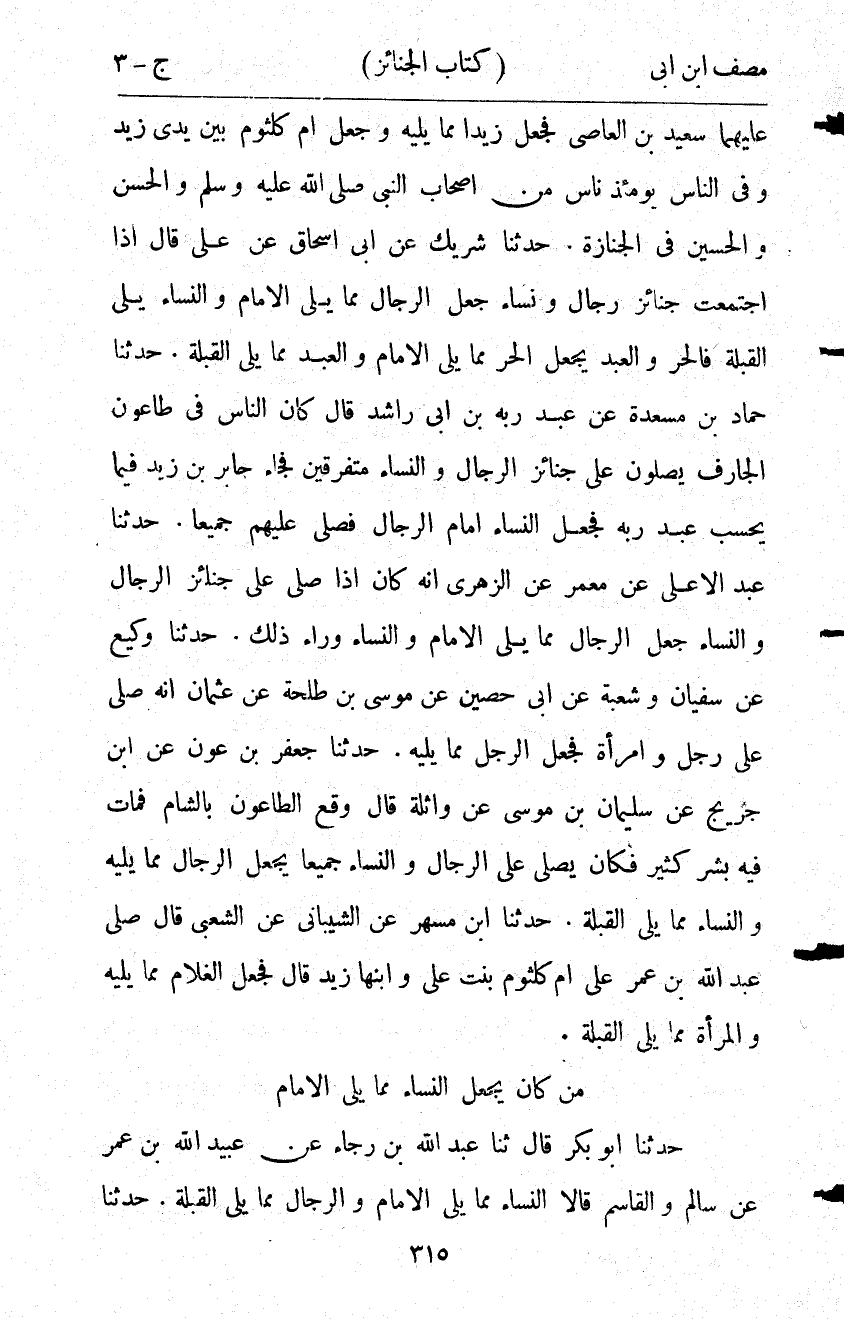 مصف ابن ابى (كتاب الجنائز) ج - ٣
عليهما سعيد بن العاصى فجعل زيدا مما يليه و جعل ام كلثوم بين يدى زيد
و فى الناس يومئذ ناس من اصحاب النبى صلى الله عليه و سلم و الحسن
و الحسين فى الجنازة . حدثنا شريك عن ابى اسحاق عن على قال اذا
اجتمعت جنائز رجال و نساء جعل الرجال مما يلى الامام و النساء يلى
القبلة فالحر و العبد يجعل الحر مما يلى الامام و العبد مما يلى القبلة . حدثنا
حماد بن مسعدة عن عبد ربه بن ابى راشد قال كان الناس فى طاعون
الجارف يصلون على جنائز الرجال و النساء متفرقين فجاء جابر بن زيد فيما
يحسب عبد ربه فجعل النساء امام الرجال فصلى عليهم جميعا . حدثنا
عبد الاعلى عن معمر عن الزهرى انه كان اذا صلى على جنائز الرجال
و النساء جعل الرجال مما يلى الامام و النساء وراء ذلك . حدثنا وكيع
عن سفيان و شعبة عن ابى حصين عن موسى بن طلحة عن عثمان انه صلى
على رجل و امرأة فجعل الرجل مما يليه . حدثنا جعفر بن عون عن ابن
جريج عن سليمان بن موسى عن واثلة قال وقع الطاعون بالشام فمات
فيه بشر كثير فكان يصلى على الرجال و النساء جميعا يجعل الرجال مما يليه
و النساء مما يلى القبلة . حدثنا ابن مسهر عن الشيبانى عن الشعبى قال صلى
عبد الله بن عمر على ام كلثوم بنت على و ابنها زيد قال فجعل الغلام مما يليه
و المرأة مما يلى القبلة .
من كان يجعل النساء مما يلى الامام
حدثنا ابو بكر قال ثنا عبد الله بن رجاء عن عبيد الله بن عمر
عن سالم و القاسم قالا النساء مما يلى الامام و الرجال مما يلى القبلة . حدثنا
٣١٥